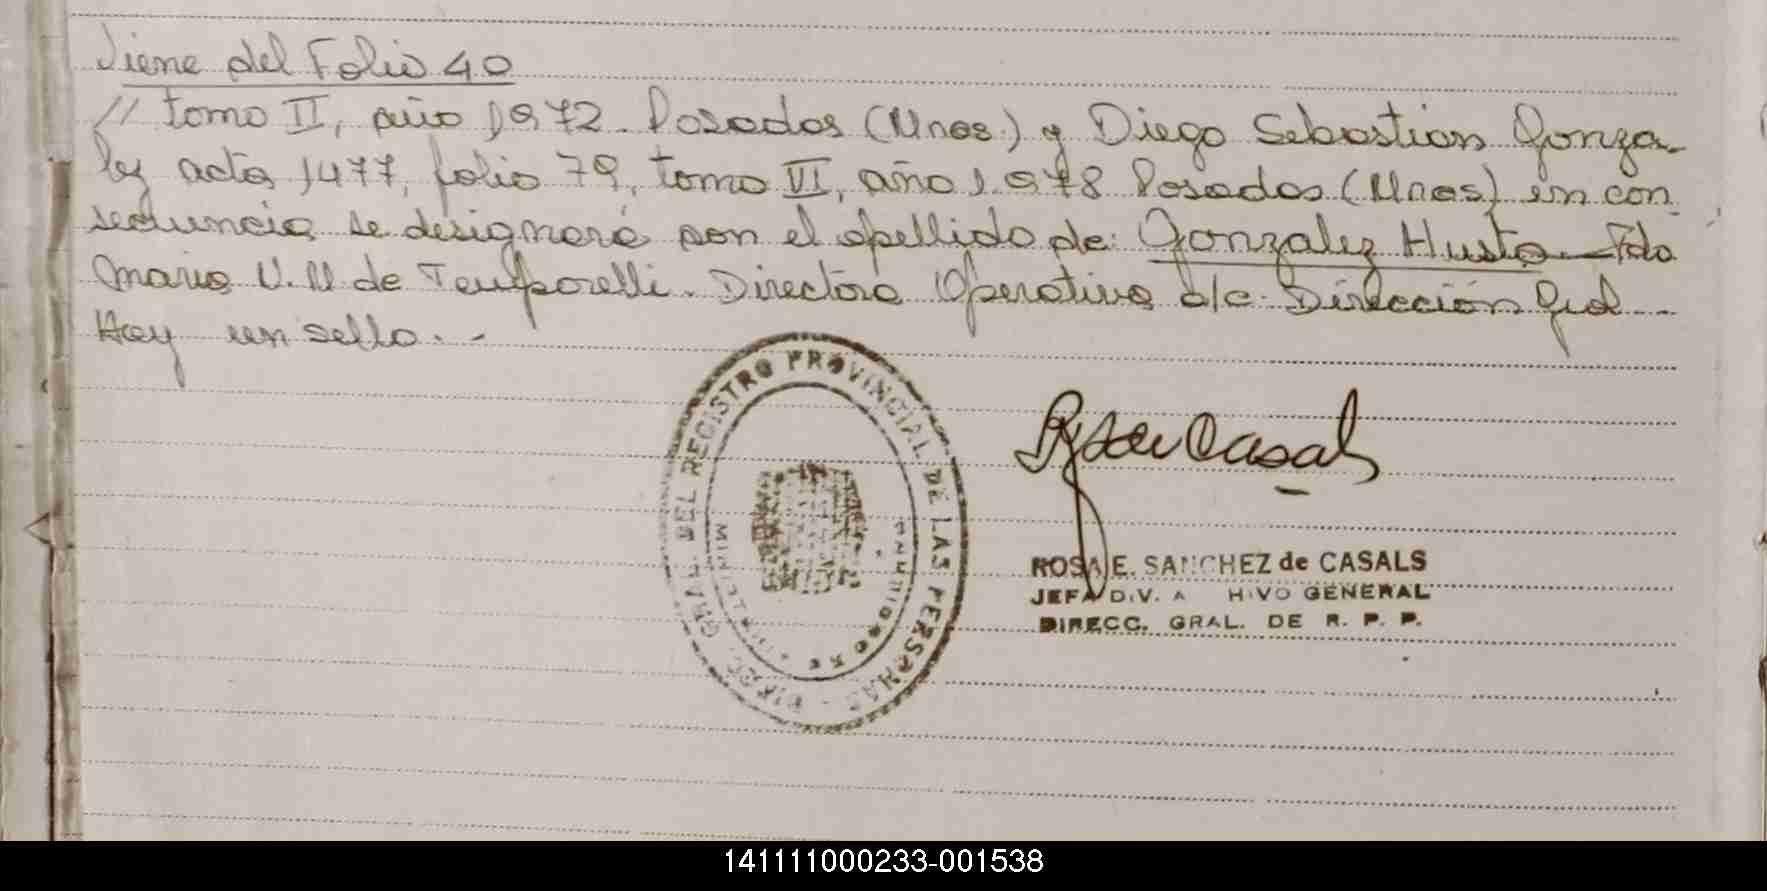 Viene del Folio 40
// tomo II, año 1972. Posadas (Mnes.) y Diego Sebastian Gonza-
lez acta 1477, folio 79, tomo VI, año 1.978 Posadas (Mnes) en con
secuencia se designará con el apellido de: Gonzalez Husta Fdo
Maria V. U de Temporelli. Directora Operativa a/c. Dirección Gral
Hay un sello. -
DIREC. GRAL. DEL REGISTRO PROVINCIAL DE LAS PERSONAS -
ROSA E. SANCHEZ de CASALS
JEFA DIV. A HIVO GENERAL
DIRECC. GRAL. DE R. P. P.
141111000233-001538